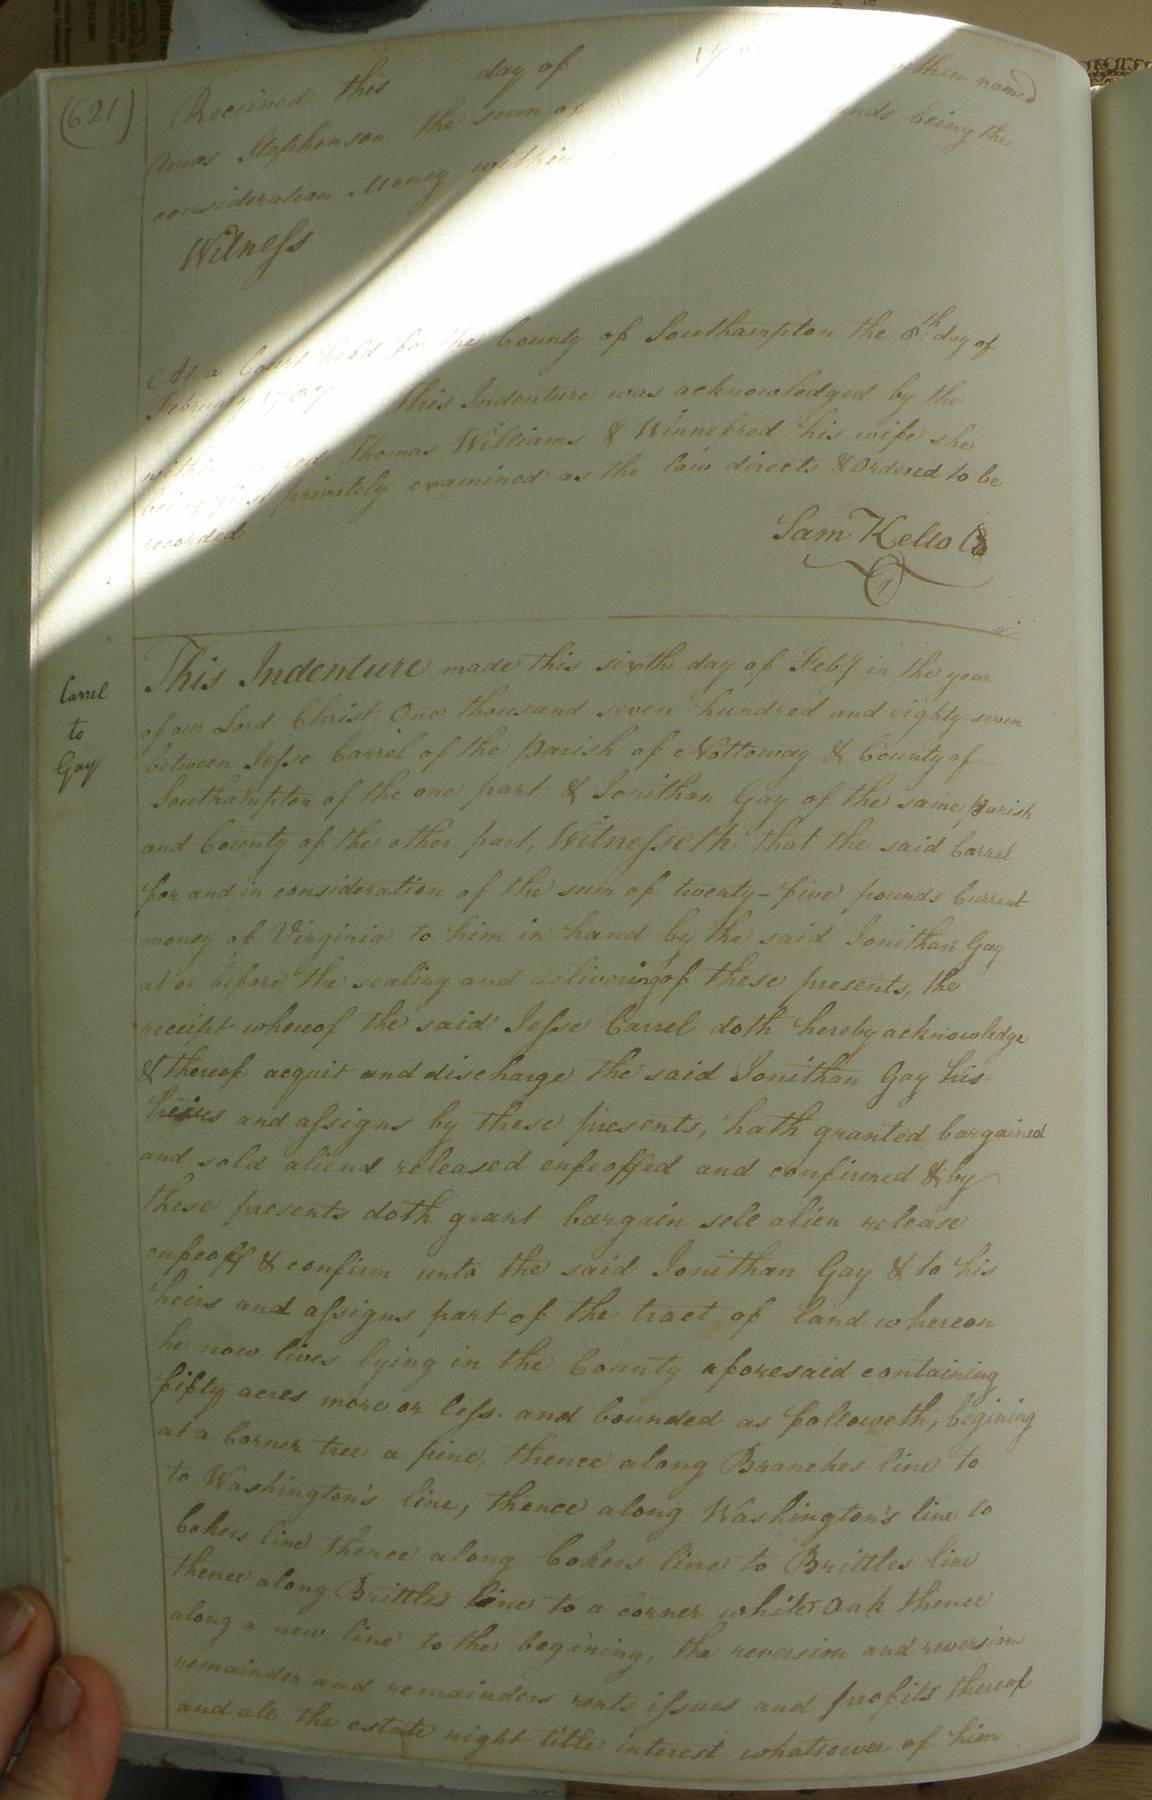 (621)
Received this day of 17 within named
Amos Stephenson the sum of pounds being the
consideration Money within
Witness
At a Court held for the County of Southampton the 8th day of
February 1787 This Indenture was acknowledged by the
within named Thomas Williams & Winnefred his wife she
being first privately examined as the law directs & Ordered to be
recorded
Sam Kello
Carrel
to
Gay
This Indenture made this sixth day of Feby in the year
of our Lord Christ One thousand seven hundred and eighty seven
between Jesse Carrel of the parish of Nottoway & County of
Southampton of the one part & Jonithan Gay of the same parish
and County of the other part, Witnesseth that the said Carrel
for and in consideration of the sum of twenty-five pounds Current
money of Virginia to him in hand by the said Jonithan Gay
at or before the sealing and delivering of these presents, the
receipt whereof the said Jesse Carrel doth hereby acknowledge
& thereof acquit and discharge the said Jonithan Gay his
heirs and assigns by these presents, hath granted bargained
and sold aliend released enfeoffed and confirmed & by
these presents doth grant bargain sell alien release
enfeoff & confirm unto the said Jonithan Gay & to his
heirs and assigns part of the tract of land whereon
he now lives lying in the County aforesaid containing
fifty acres more or less. and bounded as followeth, begining
at a Corner tree a pine, thence along Branches line to
to Washington's line, thence along Washington's line to
Cokers line thence along Cokers line to Brittles line
thence along Brittles line to a corner white Oak thence
along a new line to the begining, the reversion and reversions
remainder and remainders rents issues and profits thereof
and all the estate right title interest whatsoever of him